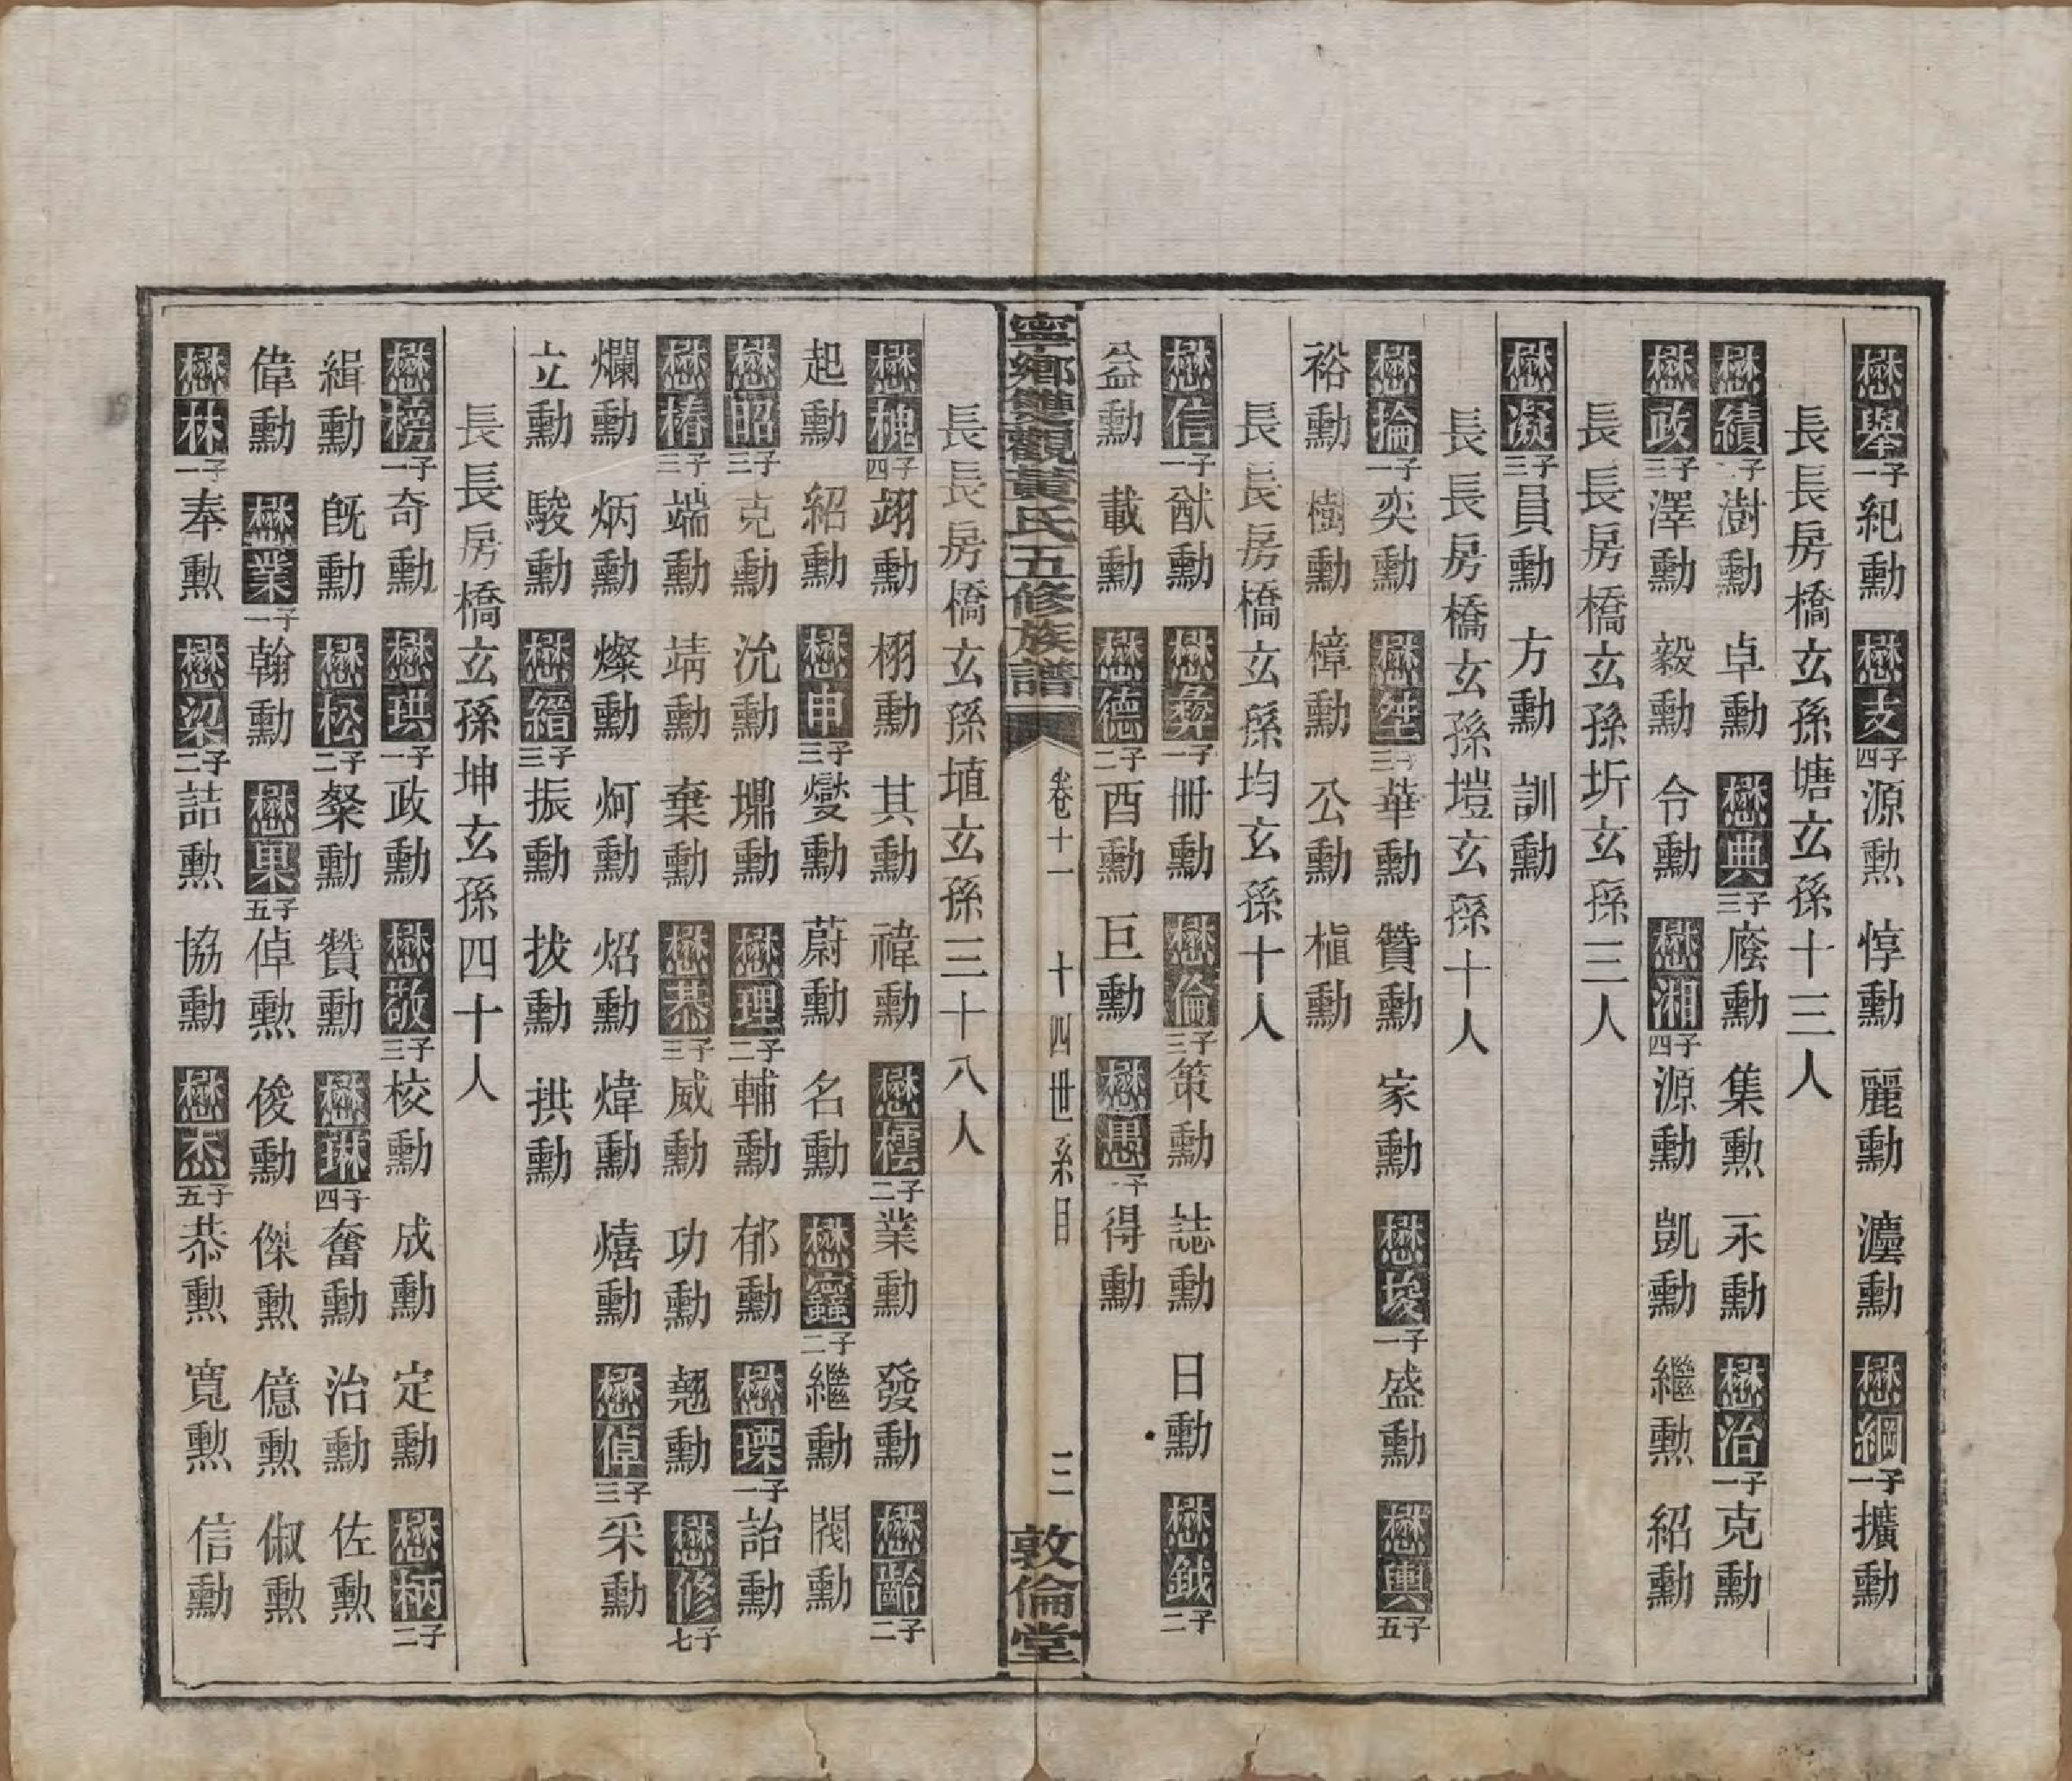 懋舉一子紀勳 懋支四子源勳 惇勳 麗勳 瀍勳 懋綱一子擴勳
長長房橋玄孫塘玄孫十三人
懋績二子澍勳 卓勳 懋典三子廢勳 集勳 永勳 懋治一子克勳
懋政三子澤勳 毅勳 令勳 懋湘四子源勳 凱勳 繼勳 紹勳
長長房橋玄孫圻玄孫三人
懋凝三子員勳 方勳 訓勳
長長房橋玄孫塏玄孫十人
懋掄一子奕勳 懋烇三子華勳 贊勳 家勳 懋埈一子盛勳 懋輿五子
裕勳 樹勳 樟勳 公勳 植勳
長長房橋玄孫均玄孫十人
懋信一子猷勳 懋彝一子冊勳 懋倫三子策勳 誌勳 日勳 懋鉞二子
益勳 載勳 懋德二子酉勳 巨勳 懋愚一子得勳
寧鄉雙觀黃氏五修族譜 卷十一 十四世系目 三 敦倫堂
長長房橋玄孫埴玄孫三十八人
懋槐四子翊勳 栩勳 其勳 禕勳 懋橒二子業勳 發勳 懋齡二子
起勳 紹勳 懋申三子燮勳 蔚勳 名勳 懋靈二子繼勳 閥勳
懋昭三子克勳 沇勳 堋勳 懋理二子輔勳 郁勳 懋瑮一子詒勳
懋椿三子端勳 靖勳 棄勳 懋恭三子威勳 功勳 翹勳 懋修七子
爛勳 炳勳 燦勳 炣勳 炤勳 煒勳 熺勳 懋倬三子采勳
立勳 駿勳 懋縉三子振勳 拔勳 拱勳
長長房橋玄孫坤玄孫四十人
懋榜一子奇勳 懋珙一子政勳 懋敬三子校勳 成勳 定勳 懋柄二子
緝勳 旣勳 懋松二子粲勳 贊勳 懋琳四子奮勳 治勳 佐勳
偉勳 懋業一子翰勳 懋果五子倬勳 俊勳 傑勳 億勳 俶勳
懋林一子奉勳 懋梁二子詰勳 協勳 懋杰五子恭勳 寬勳 信勳